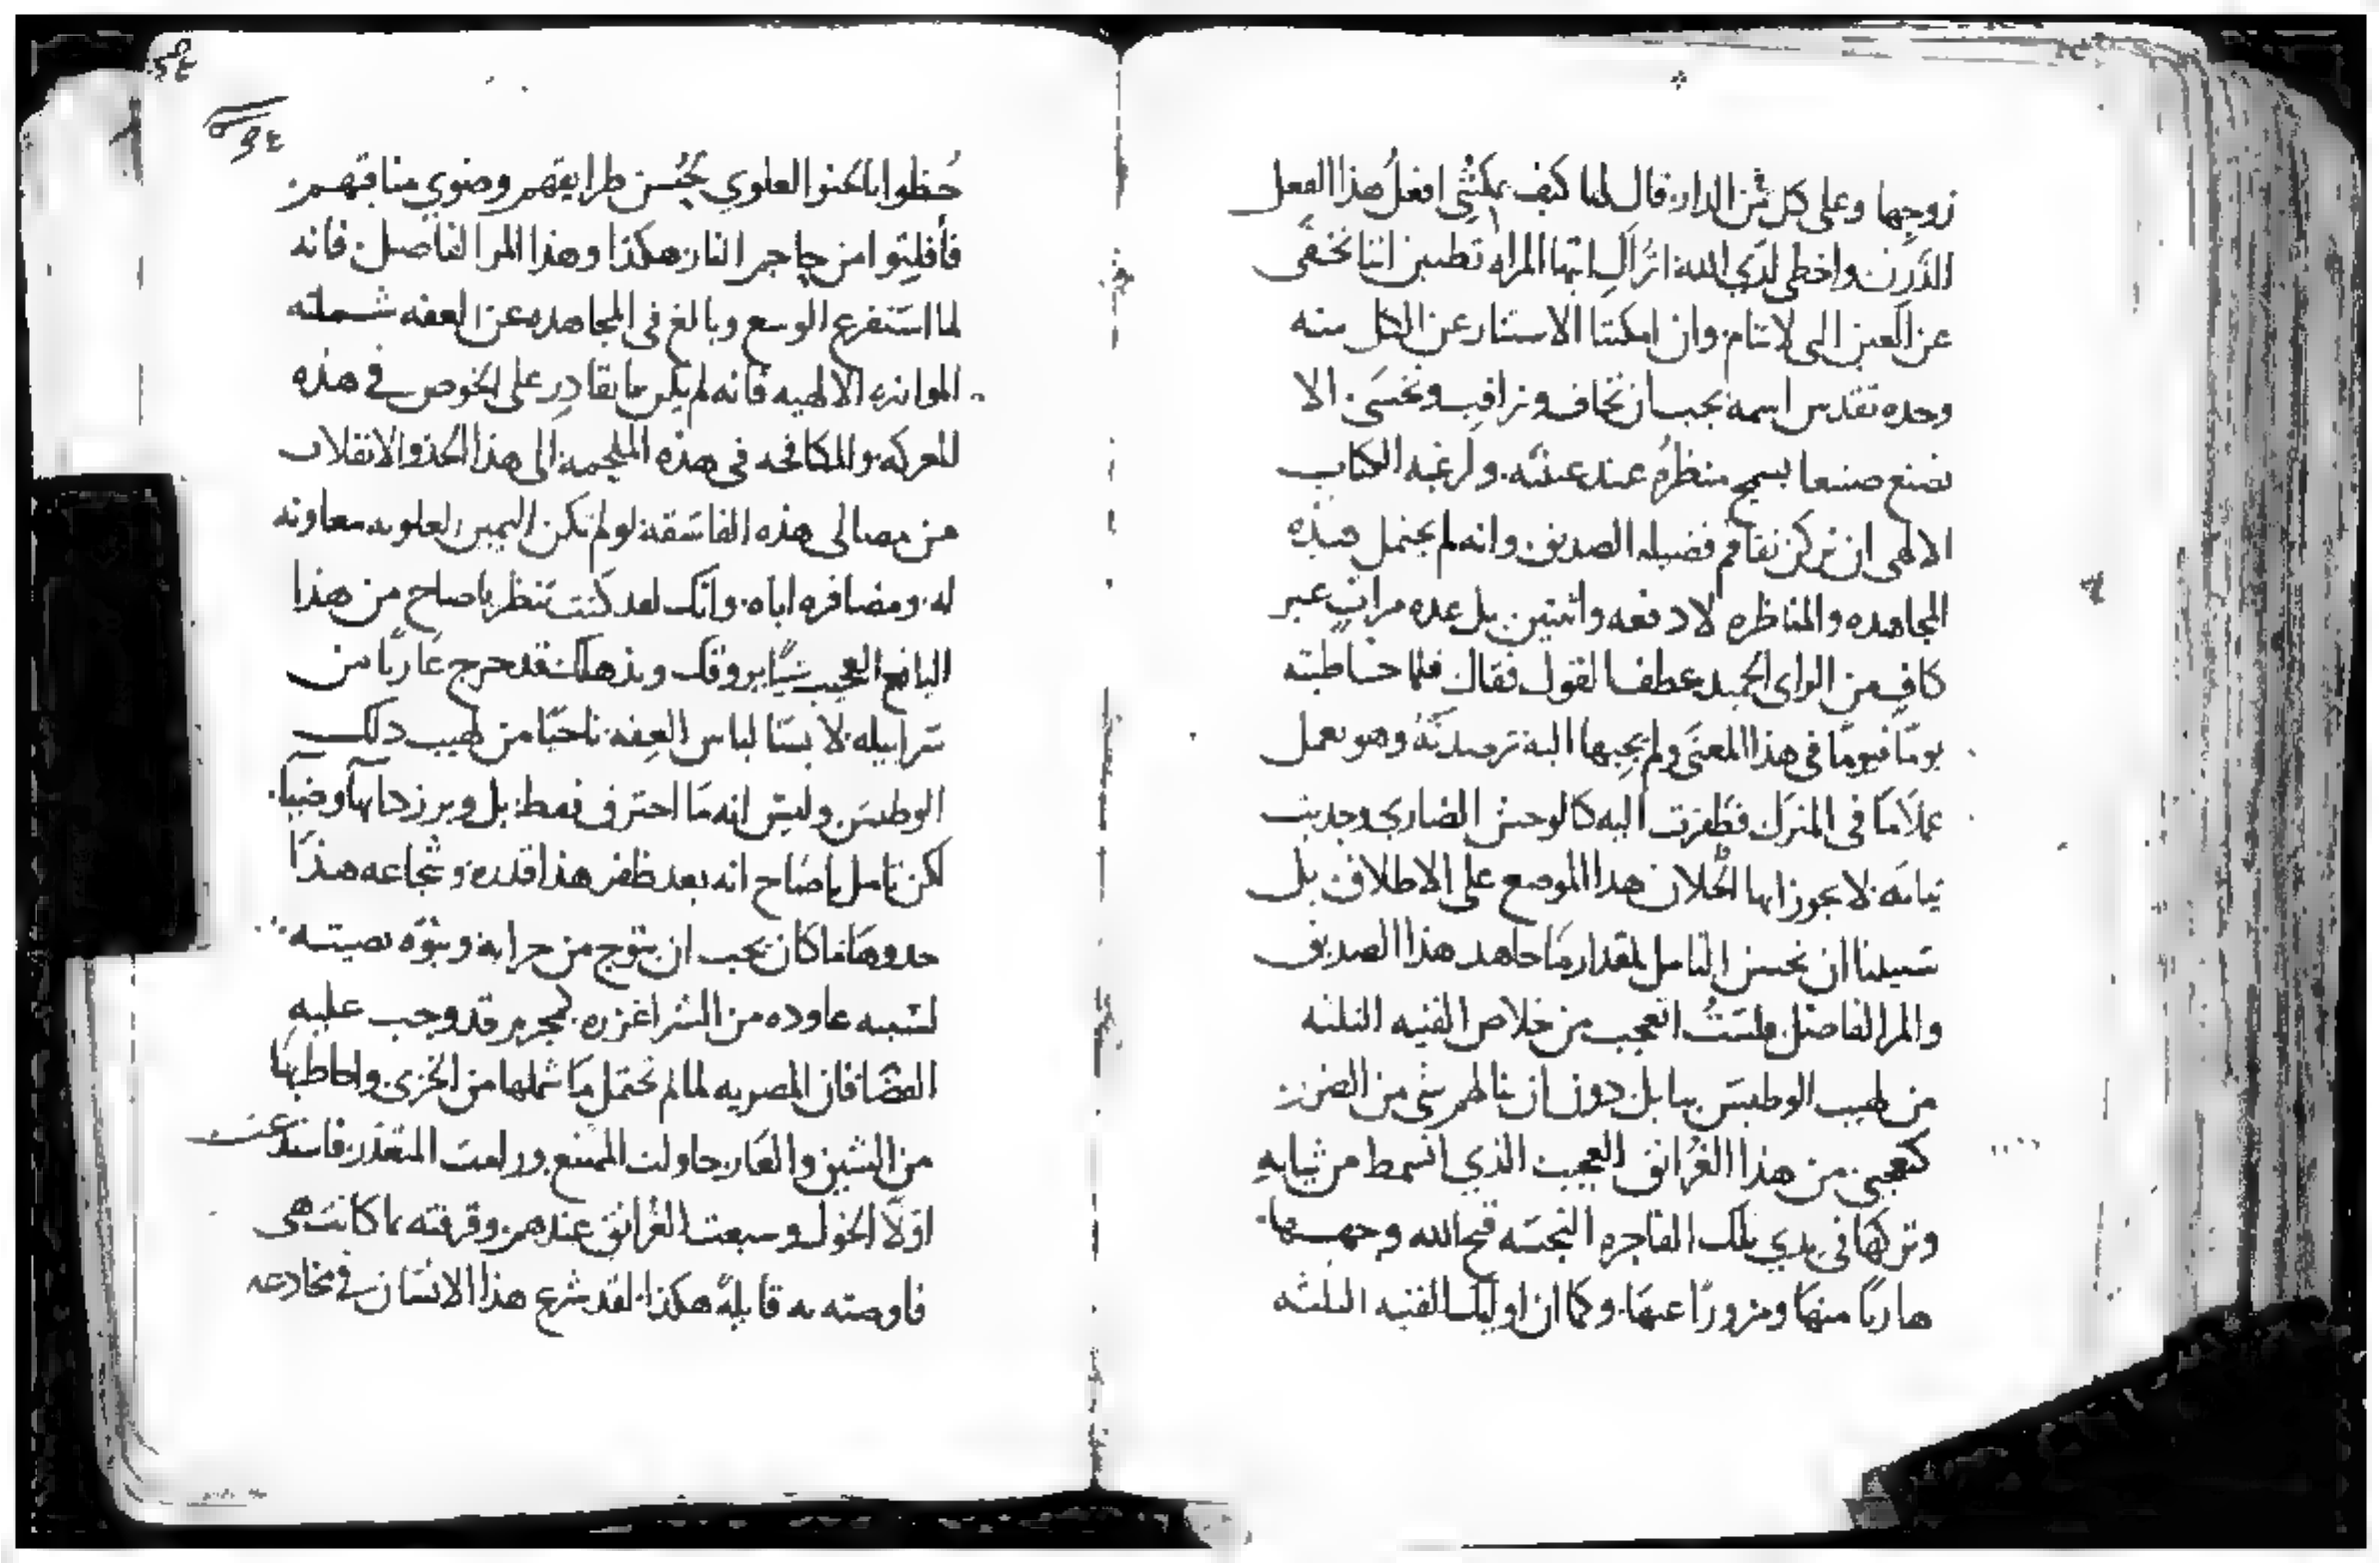 زوجها وعلى كل من في الدار. قال لها كيف يمكنني افعل هذا الفعل
الدرن واخطي لدي الله. اتراك ايتها المراه تظنين اننا نخفى
عن العين التي لا تنام. وان امكننا الاستتار عن الكل منه
وحده تقدس اسمه يجب ان نخاف ونراقب ونخشى. الا
نصنع صنعا يسمج منظره عند عينيه. ولرغبه الكتاب
الالهي ان تركز نفاقم فضيله الصديق وانه لم يحتمل هذه
المجاهده والمناظره لا دفعه واثنتين. بل عده مرات غير
كاف عن الراي الحميد عطف القول فقال فلما خاطبته
يوما فيوما في هذا المعنى ولم يجبها البته ترصدته وهو يعمل
عملا ما في المنزل فظفرت اليه كالوحش الضاري وجذبت
ثيابه. لا نجوز ايها الخلان هذا الموضع على الاطلاق بل
سبيلنا ان نحسن التامل بمقدار ما جاهد هذا الصديق
والمرا الفاضل فلست اتعجب من خلاص الفتيه الثلثه
من لهيب الوطيس ببابل دون ان ينالهم شي من الضرر
كتعجبي من هذا الغرانق العجيب الذي انسمط من ثيابه
وتركها في يدي تلك الفاجره النجسه قبح الله وجهها.
هاربا منها ومزورا عنها. وكما ان اوليك الفتيه الثلثه
حظوا بالحنو العلوي بحسن طرايقهم وضوي مناقبهم.
فأفلتوا من جاجر النار هكذا وهذا المرا الفاضل. فانه
لما استفرغ الوسع وبالغ في المجاهده عن العفه شملته
الموازره الالهيه فانه لم يكن بقادر على الخوض في هذه
المعركه والمكافحه في هذه الملحمه الى هذا الحد والانفلات
من مصالي هذه الفاسقه لو لم تكن اليمين العلويه معاونه
له. ومضافره اياه. وانك لقد كنت تنظر يا صاح من هذا
اليافع العجيب شيًا يروقك ويذهلك قد خرج عاريا من
سرابيله لابسا لباس العفه ناجيا من لهيب ذلك
الوطيس وليس انه ما احترق فقط. بل وبرز دابها وضيا.
لكن تامل يا صاح انه بعد ظفر هذا قدره وشجاعه هذا
حدوها ما كان يجب ان يتوج من جرايه وينوه بصيته
لسببه عاوده من الشر اغزره. كمجرم قد وجب عليه
القضا فان المصريه لما لم تحتمل ما شملها من الخزي. واحاط بها
من الشين والعار. حاولت الممتنع ورامت المتعذر. فاستدعت
اولا الخول وسبعت الغرانق عندهم. وقرفته بما كانت هي
فاوضته به قايله هكذا. لقد شرع هذا الانسان في مخادعه